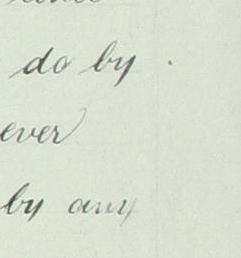 do by
ever
by any